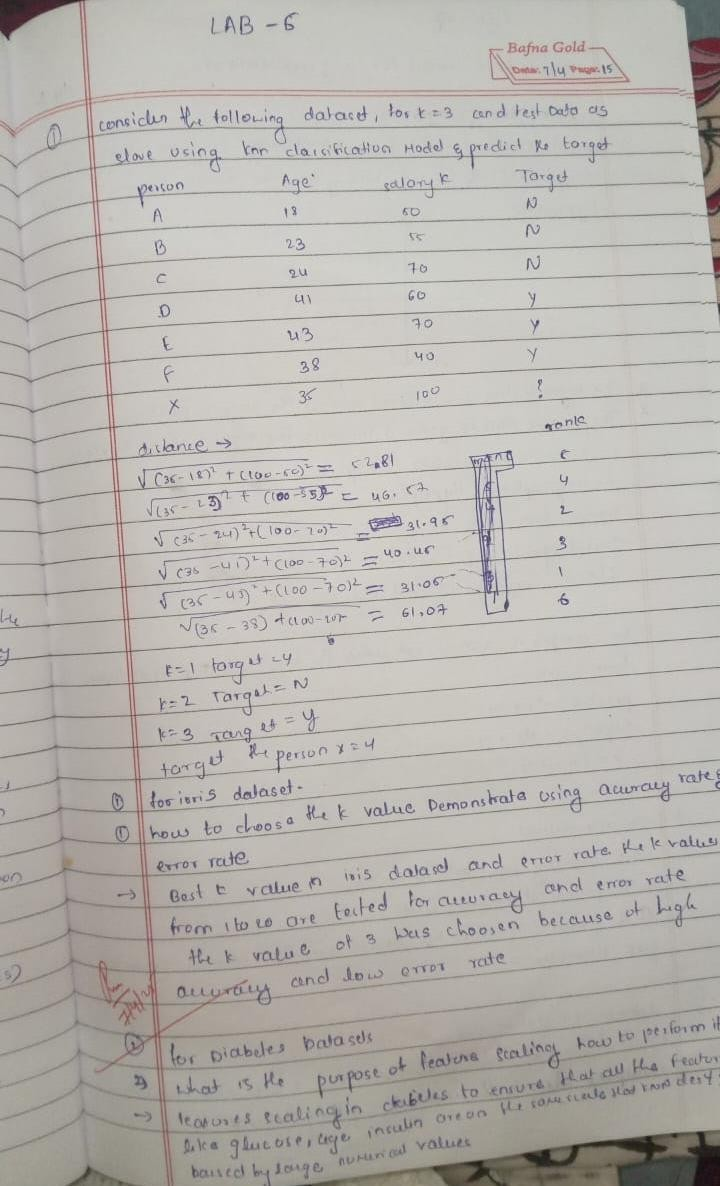 LAB - 6
Bafna Gold
Date: 7/4 Page: 15
① consider the following dataset, for k=3 and test Data as
slove using knn classification Model & predict the target
person Age salary K Target
A 18 50 N
B 23 55 N
C 24 70 N
D 41 60 Y
E 43 70 Y
F 38 40 Y
X 35 100 ?
distance → rank
√(35-18)² + (100-50)² = 52.81 5
√(35-23)² + (100-55)² = 46.57 4
√(35-24)²+(100-70)² = 31.95 2
√(35-41)²+(100-70)² = 40.45 3
√(35-43)²+(100-70)² = 31.05 1
√(35-38) + (100- = 61.07 6
k=1 target = Y
k=2 Target = N
k=3 Target = Y
target the person x = Y
① for iris dataset.
① how to choose the k value Demonstrate using accuracy rate &
error rate
→ Best k value in iris dataset and error rate. the k values
from 1 to 20 are tested for accuracy and error rate
the k value of 3 was choosen because of high
accuracy and low error rate
② for Diabetes Datasets
2) what is the purpose of feature scaling how to perform it
→ features scaling in diabetes to ensure that all the featur
like glucose, age insulin are on the same scale
baised by large numerical values